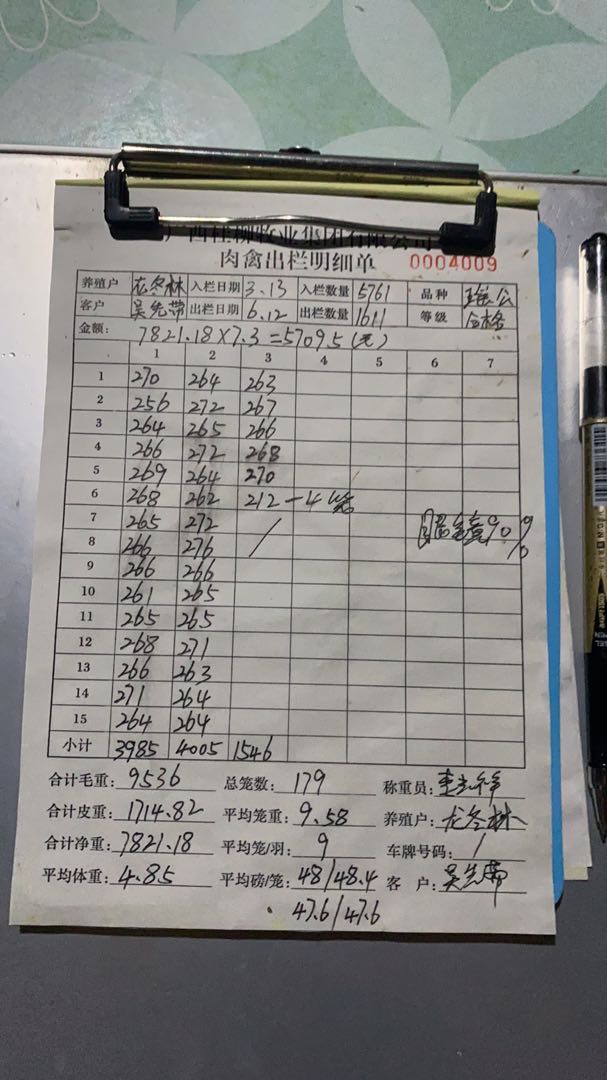 广西桂柳牧业集团有限公司
肉禽出栏明细单 0004009
养殖户 龙冬林 入栏日期 3.13 入栏数量 5761 品种
客户 吴先带 出栏日期 6.12 出栏数量 1611 等级 合格
金额: 7821.18×7.3=57095(元)
1 2 3 4 5 6 7
1 270 264 263
2 256 272 267
3 264 265 266
4 266 272 268
5 269 264 270
6 268 262 212-4笼
7 265 272 /
8 266 276 90%
9 266 266
10 261 265
11 265 265
12 268 271
13 266 263
14 271 264
15 264 264
小计 3985 4005 1546
合计毛重: 9536 总笼数: 179 称重员:
合计皮重: 1714.82 平均笼重: 9.58 养殖户: 龙冬林
合计净重: 7821.18 平均笼/羽: 9 车牌号码: /
平均体重: 4.85 平均磅/笼: 48/48.4 客 户: 吴先带
47.6/47.6